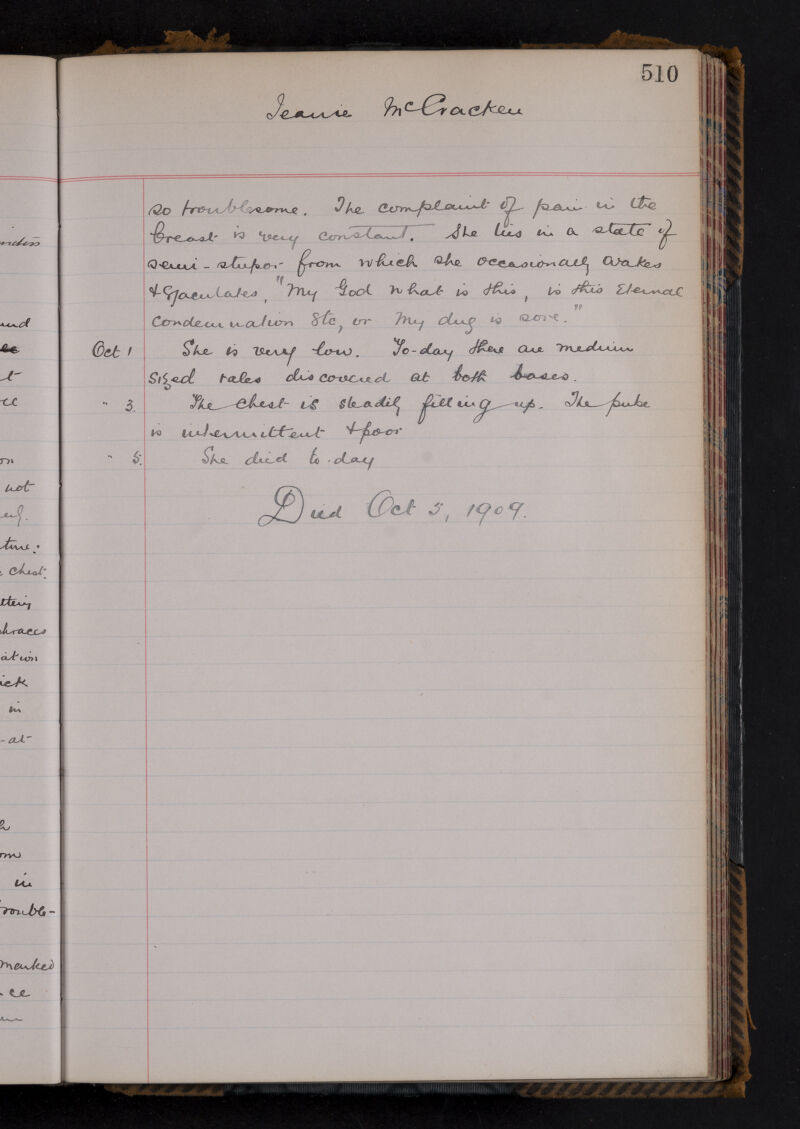 510
Jeanie McCracken
so troublesome. The complaint of pain in the
breast is very constant. She lies in a state of
semi-stupor from which she occasionally wakes
& Ejaculates, "My God what is this, is this Eternal
Condemnation Etc, or My dug is sore."
Oct 1 She is very low. To-day there are medium
Sized rales discovered at both bases.
" 3. The Chest is steadily filling up. The pulse
is intermittent & poor
" 5. She died to-day
Died Oct 5, 1909.
und
not
time:
Chest.
ation
in
-at
in
rouble-
marked